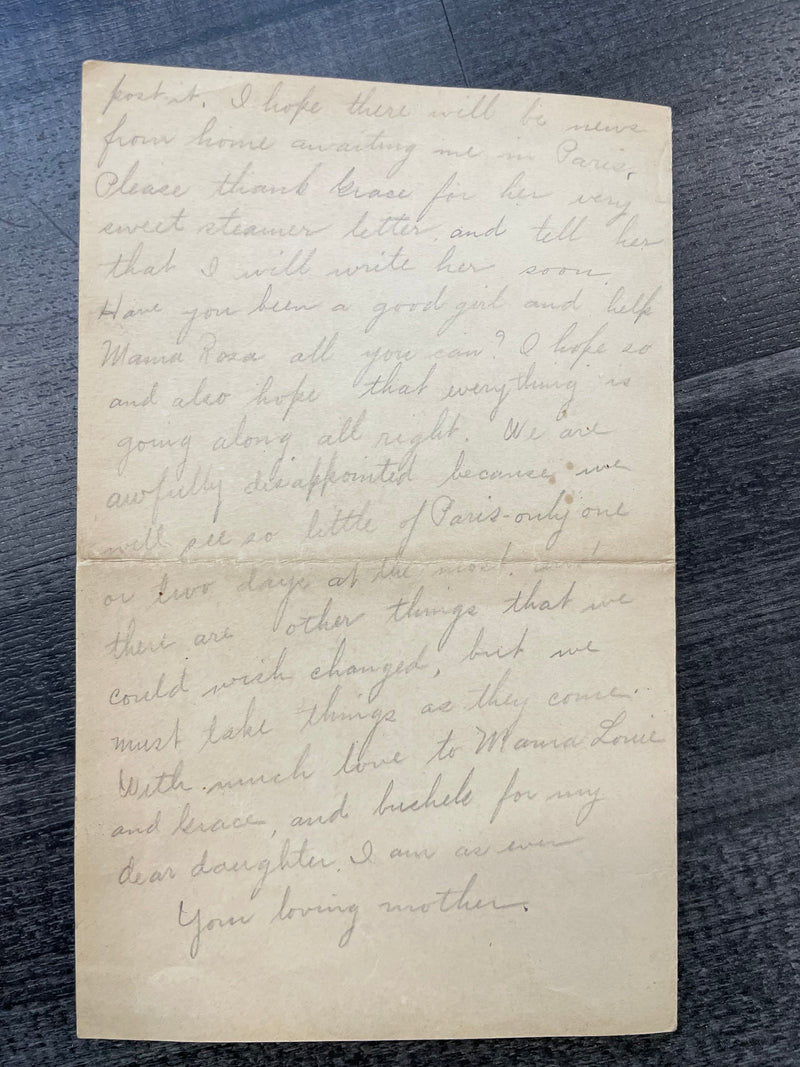 post it. I hope there will be news
from home awaiting me in Paris.
Please thank Grace for her very
sweet steamer letter, and tell her
that I will write her soon.
Have you been a good girl and help
Mama Rosa all you can? I hope so
and also hope that everything is
going along all right. We are
awfully disappointed because we
will see so little of Paris-only one
or two days at the most and
there are other things that we
could wish changed, but we
must take things as they come.
With much love to Mama Louie
and Grace, and bushels for my
dear daughter. I am as ever
Your loving mother.